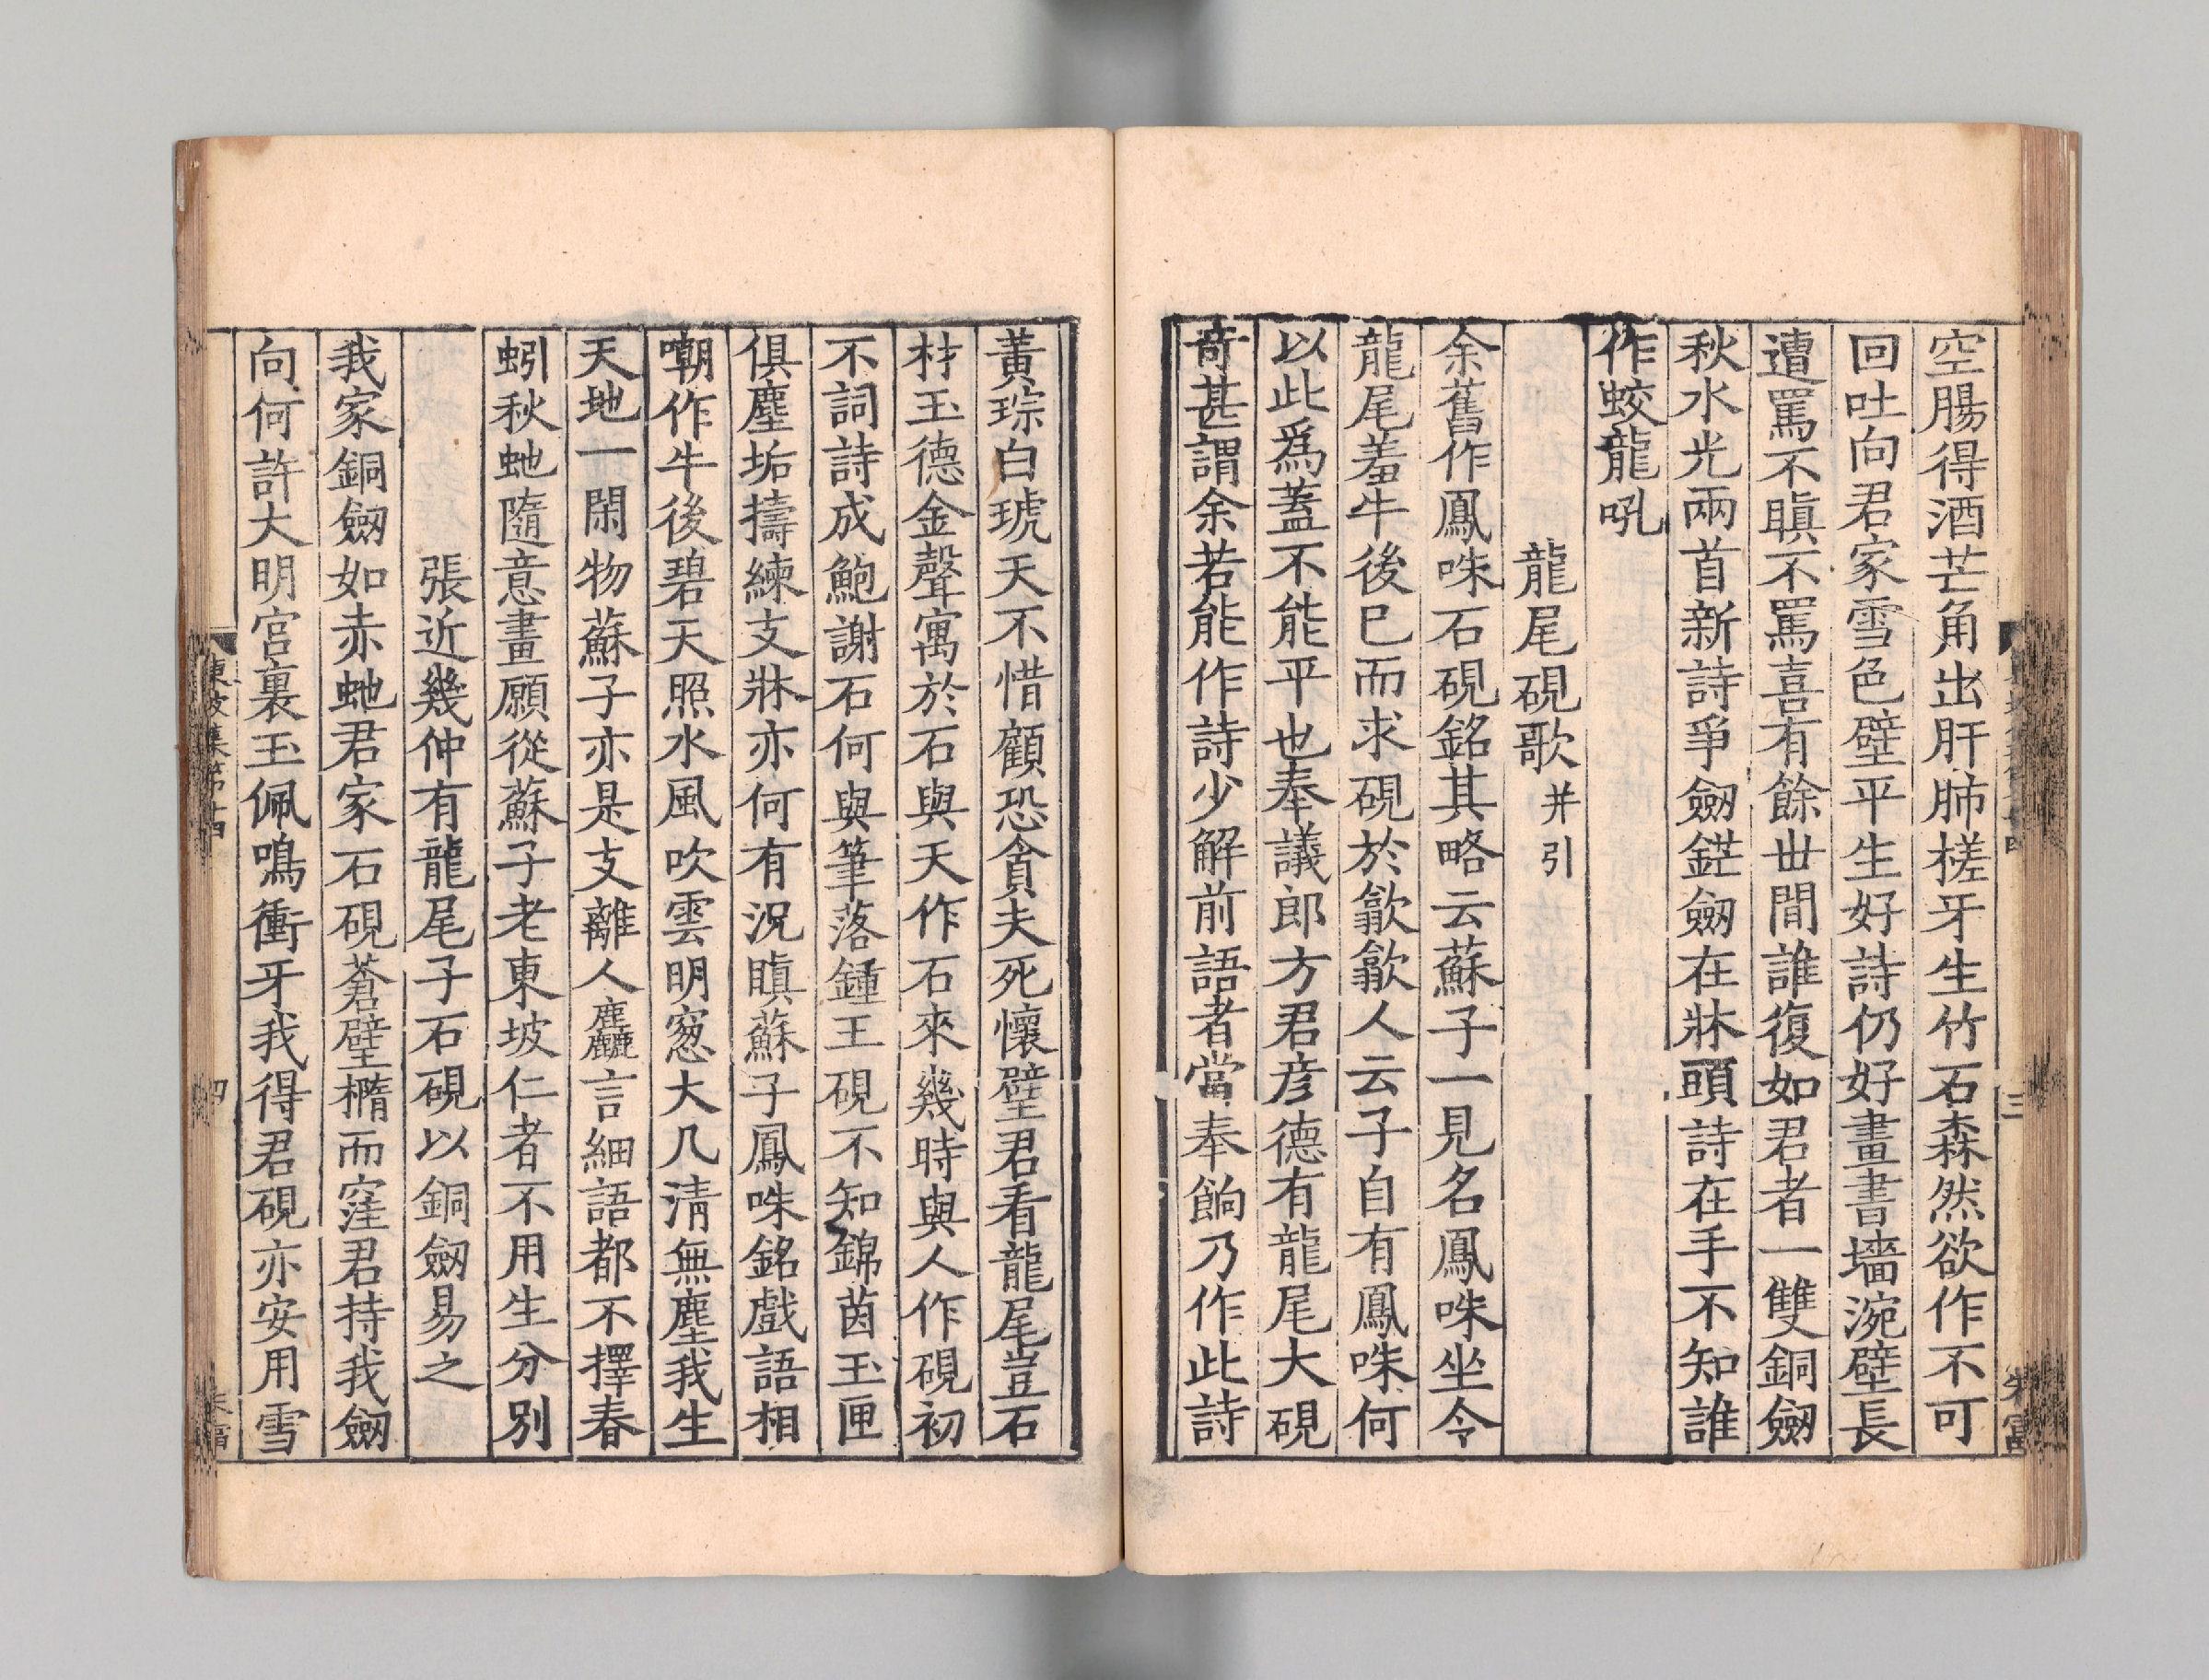 空腸得酒芒角出肝肺槎牙生竹石森然欲作不可
回吐向君家雪色壁平生好詩仍好畫書墻涴壁長
遭罵不瞋不罵喜有餘丗間誰復如君者一雙銅劒
秋水光兩首新詩爭劒鋩劒在牀頭詩在手不知誰
作蛟龍吼
龍尾硯歌并引
余舊作鳳咮石硯銘其略云蘇子一見名鳳咮坐令
龍尾羞牛後已而求硯於歙歙人云子自有鳳咮何
以此爲蓋不能平也奉議郎方君彦德有龍尾大硯
奇甚謂余若能作詩少解前語者當奉餉乃作此詩
黃琮白琥天不惜顧恐貪夫死懷璧君看龍尾豈石
材玉德金聲寓於石與天作石來幾時與人作硯初
不詞詩成鮑謝石何與筆落鍾王硯不知錦茵玉匣
俱塵垢擣練支牀亦何有況瞋蘇子鳳咮銘戲語相
嘲作牛後碧天照水風吹雲明窓大几清無塵我生
天地一閑物蘇子亦是支離人麤言細語都不擇春
蚓秋虵隨意畫願從蘇子老東坡仁者不用生分別
張近幾仲有龍尾子石硯以銅劒易之
我家銅劒如赤虵君家石硯蒼璧橢而窪君持我劒
向何許大明宮裏玉佩鳴衝牙我得君硯亦安用雪
東坡集第十四
四
三